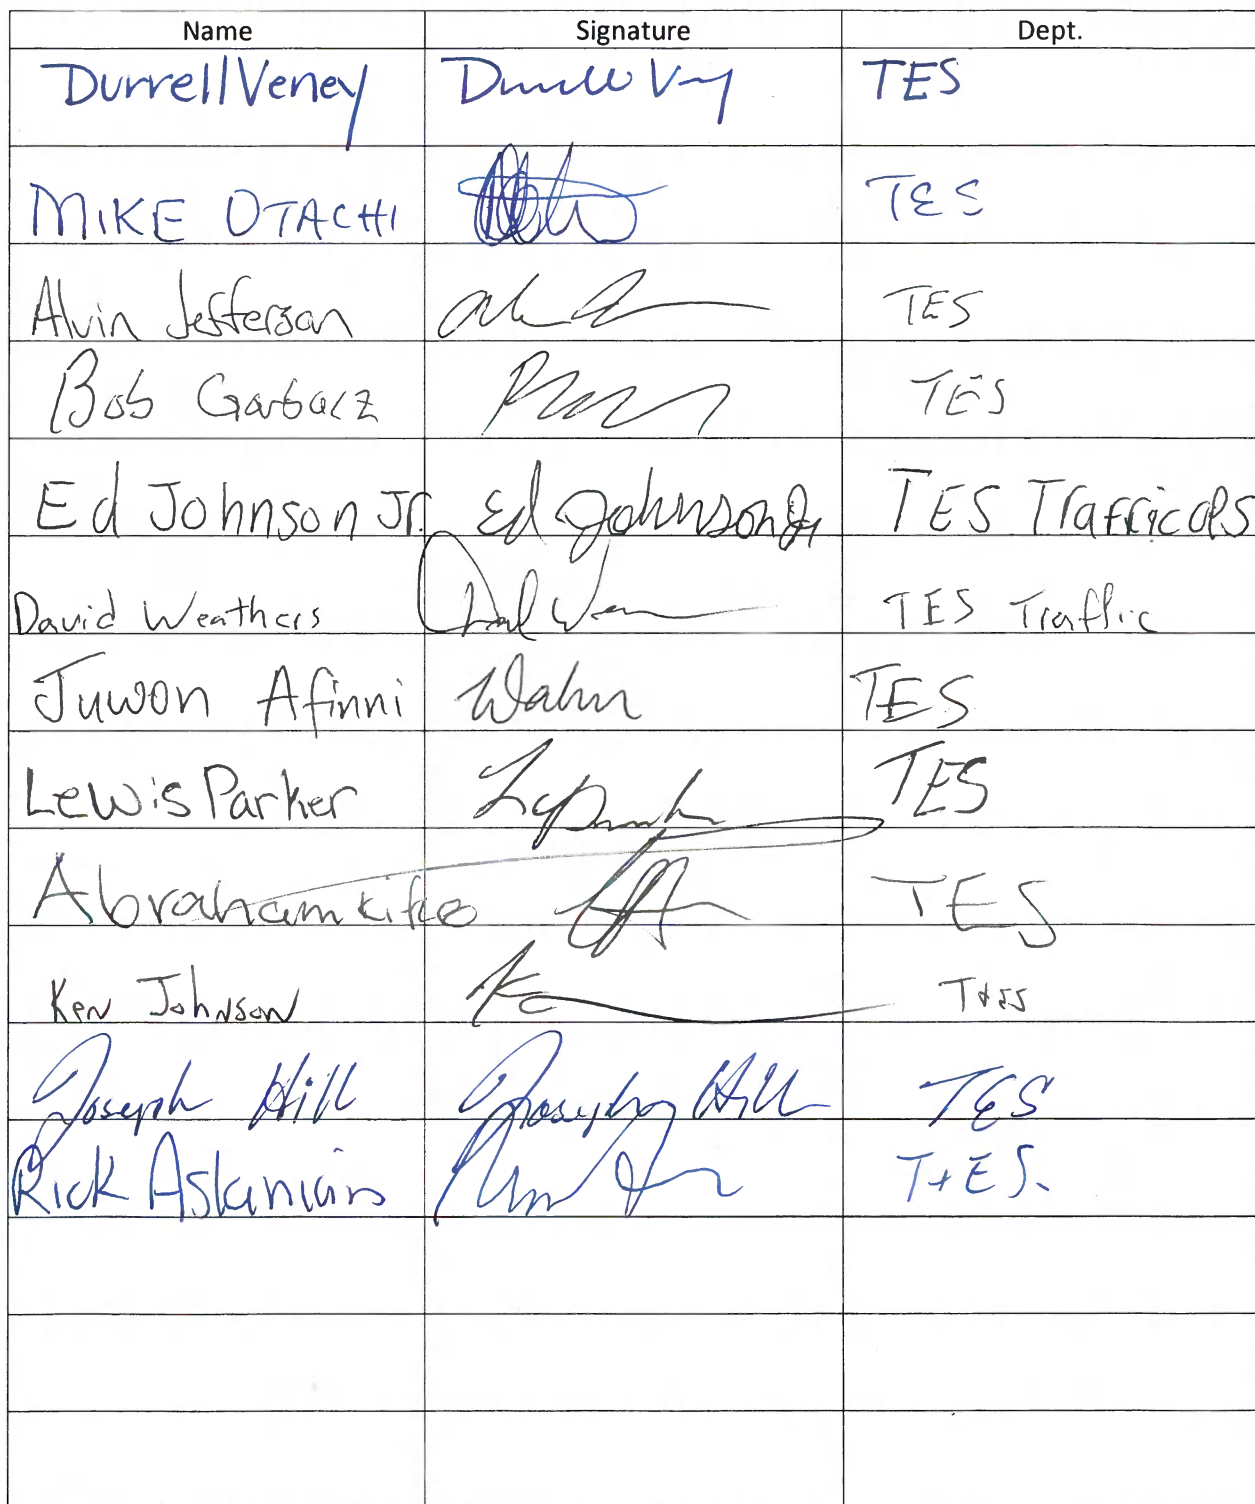 Name Signature Dept.
Durrell Veney TES
MIKE OTACHI TES
Alvin Jefferson TES
Bob Garbacz TES
Ed Johnson Jr. Ed Johnson Jr TES Traffic OPS
David Weathers TES Traffic
Juwon Afinni TES
Lewis Parker TES
Abraham TES
Ken Johnson T+ES
Joseph Hill Joseph Hill TES
Rick Askanians T+ES.